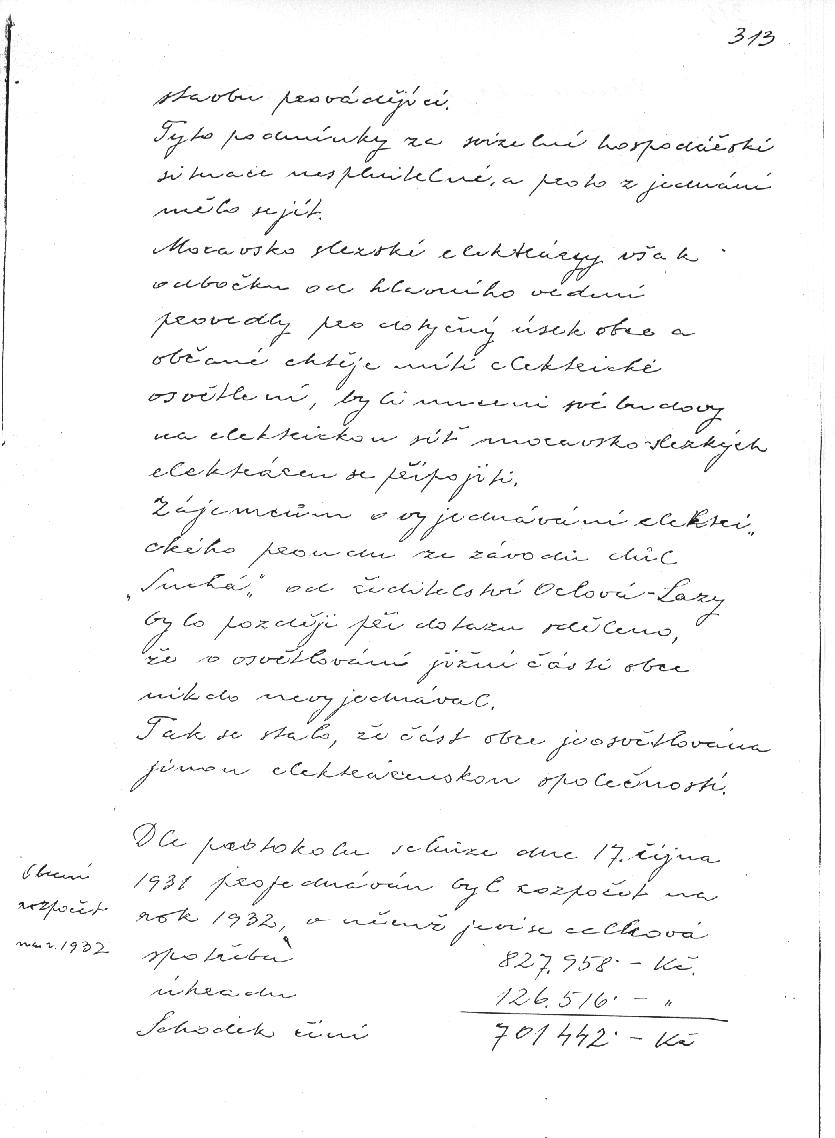 313
stavbu provádějící.
Tyto podmínky za svízelné hospodářské
situace nesplnitelné, a proto z jednání
mělo sejít.
Moravsko slezské elektrárny však
odbočku od hlavního vedení
provedly pro dotyčný úsek obce a
občané chtěje míti elektrické
osvětlení, byli nuceni své budovy
na elektrickou síť moravsko-slezkých
elektráren se připojiti.
Zájemcům o vyjednávání elektri„
ckého proudu ze závodu důl
„Suchá„ od ředitelství Orlová-Lazy
bylo později při dotazu sděleno,
že o osvětlování jižní části obce
nikdo nevyjednával.
Tak se stalo, že část obce je osvětlována
jinou elektrárenskou společností.
Obecní
rozpočet
na r. 1932
Dle protokolu schůze dne 17. října
1931 projednáván byl rozpočet na
rok 1932, v němž jeví se celková
spotřeba 827.958·- Kč.
úhrada 126.516·- „
Schodek činí 701442·- Kč